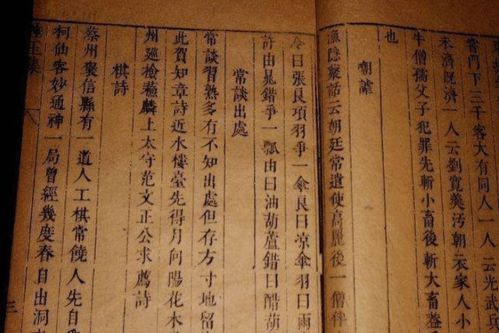 嘗門下三千客大有同人一人云光武兵
未濟既濟一人云劉寬羹汚朝衣家人小
牛僧孺父子犯罪先斬小畜後斬大畜蓋
也
朝謔
漁隱叢話云朝廷常遣使高麗後一僧伴
令曰張良項羽爭一傘良曰凉傘羽曰雨
許由晁錯爭一瓢由曰油葫蘆錯曰醋葫
常談出處
常談習熟多有不知出處但存方寸地留
此賀知章詩近水樓臺先得月向陽花木
州廵檢蘇麟上太守范文正公求薦詩
棋詩
蔡州褒信縣有一道人工棋常饒人先自
柯仙客妙通神一局曾經幾度春自出洞
玉集
三